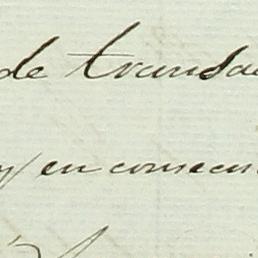 de transac
en consecu